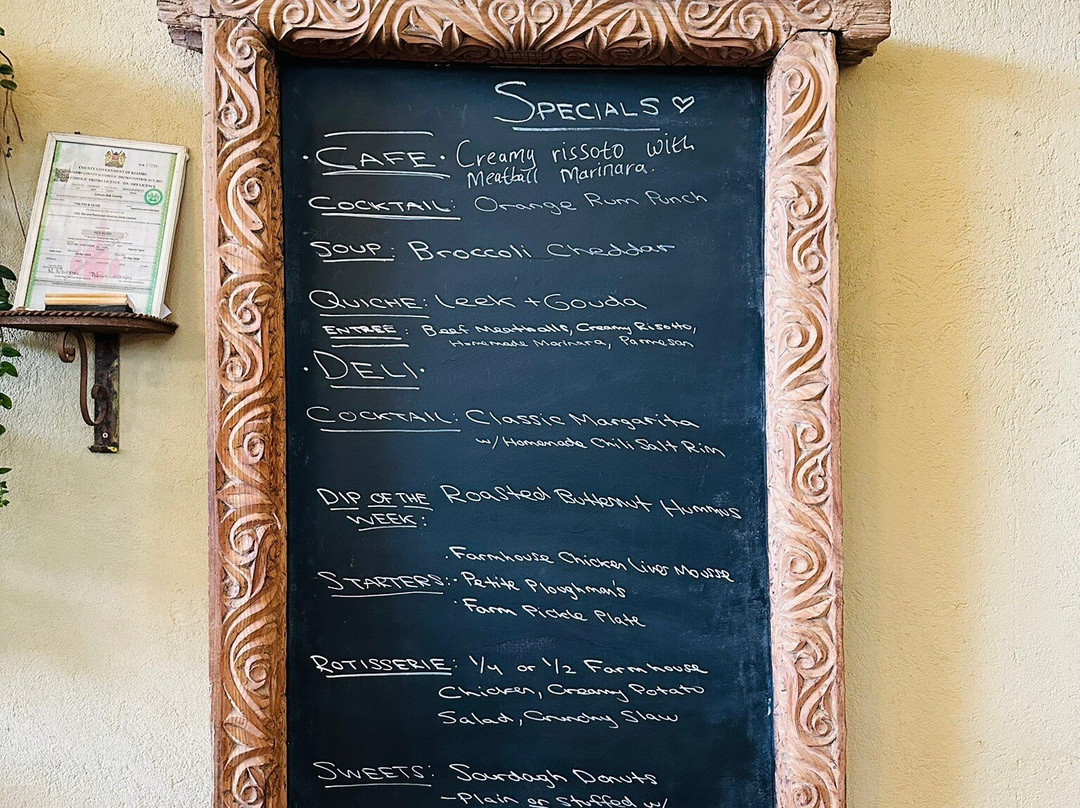 COUNTY GOVERNMENT OF KIAMBU
SPECIALS
· CAFE · Creamy rissoto with
Meatball Marinara.
COCKTAIL: Orange Rum Punch
SOUP: Broccoli Cheddar
QUICHE: Leek + Gouda
ENTREE: Beef Meatballs, Creamy Risotto,
Homemade Marinara, Parmesan
· DELI ·
COCKTAIL: Classic Margarita
w/ Homemade Chili Salt Rim
DIP OF THE WEEK: Roasted Butternut Hummus
· Farmhouse Chicken Liver Mousse
STARTERS: · Petite Ploughman's
· Farm Pickle Plate
ROTISSERIE: 1/4 or 1/2 Farmhouse
Chicken, Creamy Potato
Salad, Crunchy Slaw
SWEETS: Sourdagh Donuts
- Plain or Stuffed w/